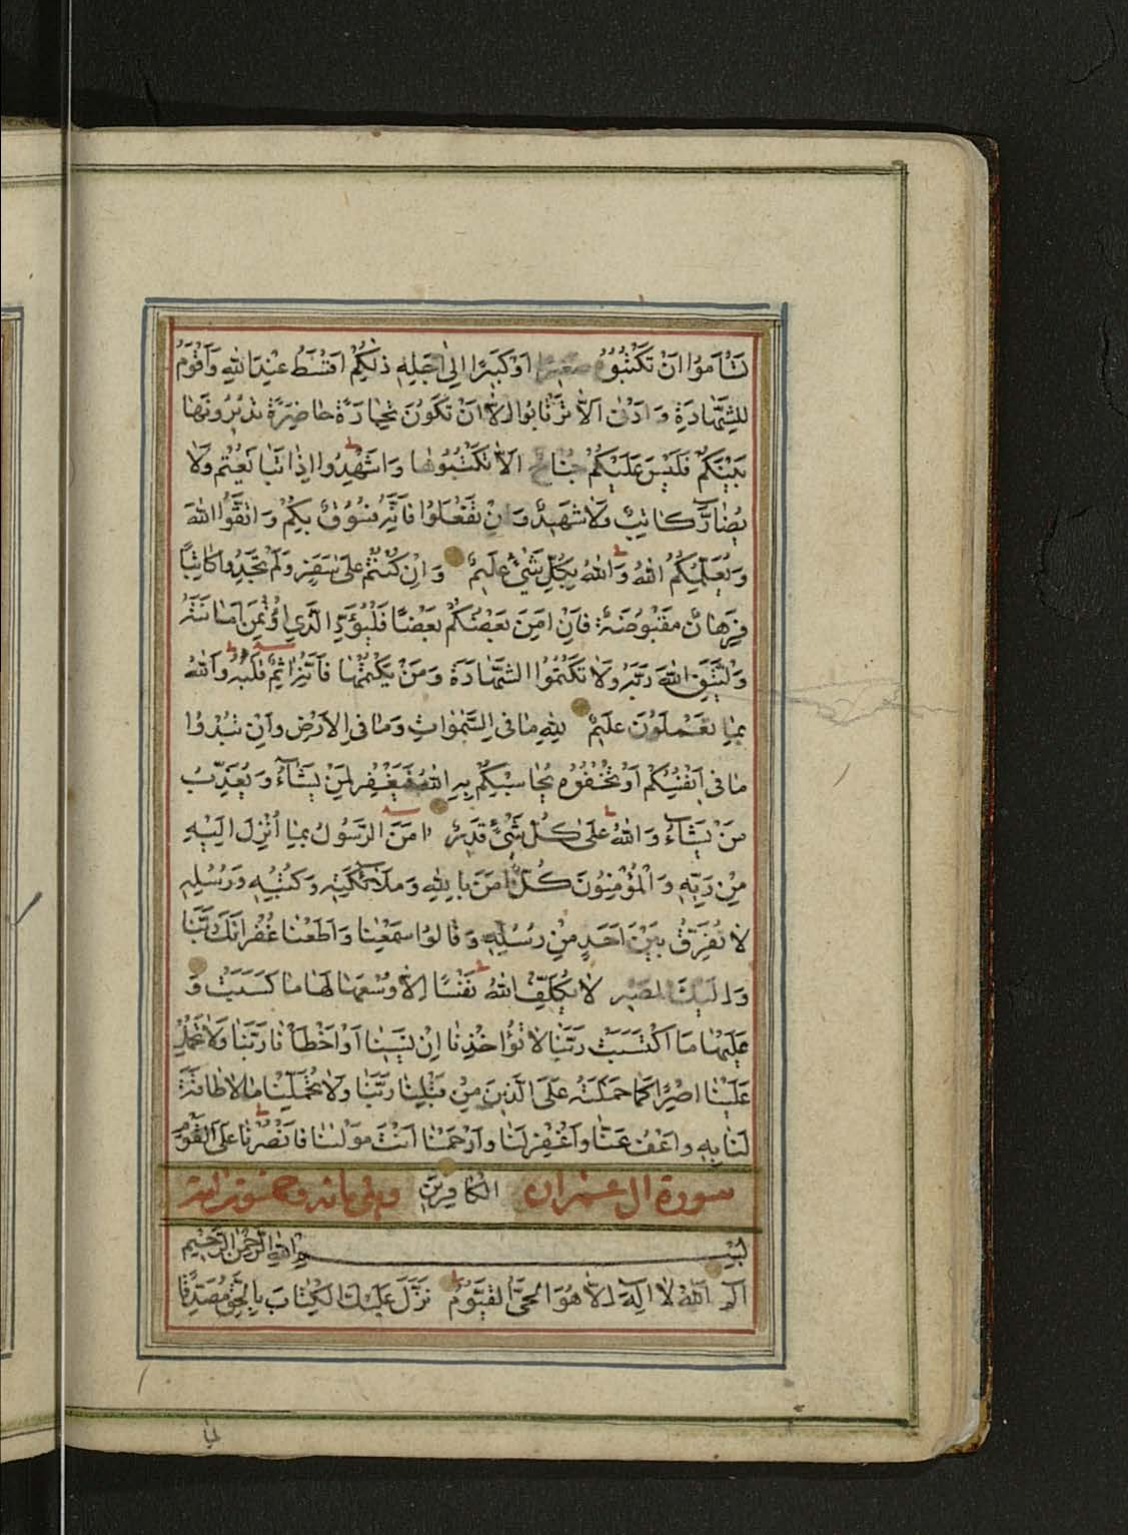 تَسْأَمُوا اَنْ تَكْتُبُوهُ صَغِيرًا اَوْ كَبِيرًا اِلٰى اَجَلِهِ ذٰلِكُمْ اَقْسَطُ عِنْدَ اللهِ وَاَقْوَمُ
لِلشَّهَادَةِ وَاَدْنٰى اَلَّا تَرْتَابُوا اِلَّا اَنْ تَكُونَ تِجَارَةً حَاضِرَةً تُدِيرُونَهَا
بَيْنَكُمْ فَلَيْسَ عَلَيْكُمْ جُنَاحٌ اَلَّا تَكْتُبُوهَا وَاَشْهِدُوا اِذَا تَبَايَعْتُمْ وَلَا
يُضَارَّ كَاتِبٌ وَلَا شَهِيدٌ وَاِنْ تَفْعَلُوا فَاِنَّهُ فُسُوقٌ بِكُمْ وَاتَّقُوا اللهَ
وَيُعَلِّمُكُمُ اللهُ وَاللهُ بِكُلِّ شَيْءٍ عَلِيمٌ وَاِنْ كُنْتُمْ عَلٰى سَفَرٍ وَلَمْ تَجِدُوا كَاتِبًا
فَرِهَانٌ مَقْبُوضَةٌ فَاِنْ اَمِنَ بَعْضُكُمْ بَعْضًا فَلْيُؤَدِّ الَّذِي اؤْتُمِنَ اَمَانَتَهُ
وَلْيَتَّقِ اللهَ رَبَّهُ وَلَا تَكْتُمُوا الشَّهَادَةَ وَمَنْ يَكْتُمْهَا فَاِنَّهُ اٰثِمٌ قَلْبُهُ وَاللهُ
بِمَا تَعْمَلُونَ عَلِيمٌ لِلّٰهِ مَا فِي السَّمٰوَاتِ وَمَا فِي الْاَرْضِ وَاِنْ تُبْدُوا
مَا فِي اَنْفُسِكُمْ اَوْ تُخْفُوهُ يُحَاسِبْكُمْ بِهِ اللهُ فَيَغْفِرُ لِمَنْ يَشَاءُ وَيُعَذِّبُ
مَنْ يَشَاءُ وَاللهُ عَلٰى كُلِّ شَيْءٍ قَدِيرٌ اٰمَنَ الرَّسُولُ بِمَا اُنْزِلَ اِلَيْهِ
مِنْ رَبِّهِ وَالْمُؤْمِنُونَ كُلٌّ اٰمَنَ بِاللهِ وَمَلَائِكَتِهِ وَكُتُبِهِ وَرُسُلِهِ
لَا نُفَرِّقُ بَيْنَ اَحَدٍ مِنْ رُسُلِهِ وَقَالُوا سَمِعْنَا وَاَطَعْنَا غُفْرَانَكَ رَبَّنَا
وَاِلَيْكَ الْمَصِيرُ لَا يُكَلِّفُ اللهُ نَفْسًا اِلَّا وُسْعَهَا لَهَا مَا كَسَبَتْ وَ
عَلَيْهَا مَا اكْتَسَبَتْ رَبَّنَا لَا تُؤَاخِذْنَا اِنْ نَسِينَا اَوْ اَخْطَأْنَا رَبَّنَا وَلَا تَحْمِلْ
عَلَيْنَا اِصْرًا كَمَا حَمَلْتَهُ عَلَى الَّذِينَ مِنْ قَبْلِنَا رَبَّنَا وَلَا تُحَمِّلْنَا مَا لَا طَاقَةَ
لَنَا بِهِ وَاعْفُ عَنَّا وَاغْفِرْ لَنَا وَارْحَمْنَا اَنْتَ مَوْلٰينَا فَانْصُرْنَا عَلَى الْقَوْمِ
سورة ال عمران الْكَافِرِينَ
بِسْمِ اللهِ الرَّحْمٰنِ الرَّحِيمِ
الٓمٓ اَللهُ لَا اِلٰهَ اِلَّا هُوَ الْحَيُّ الْقَيُّومُ نَزَّلَ عَلَيْكَ الْكِتَابَ بِالْحَقِّ مُصَدِّقًا
لما